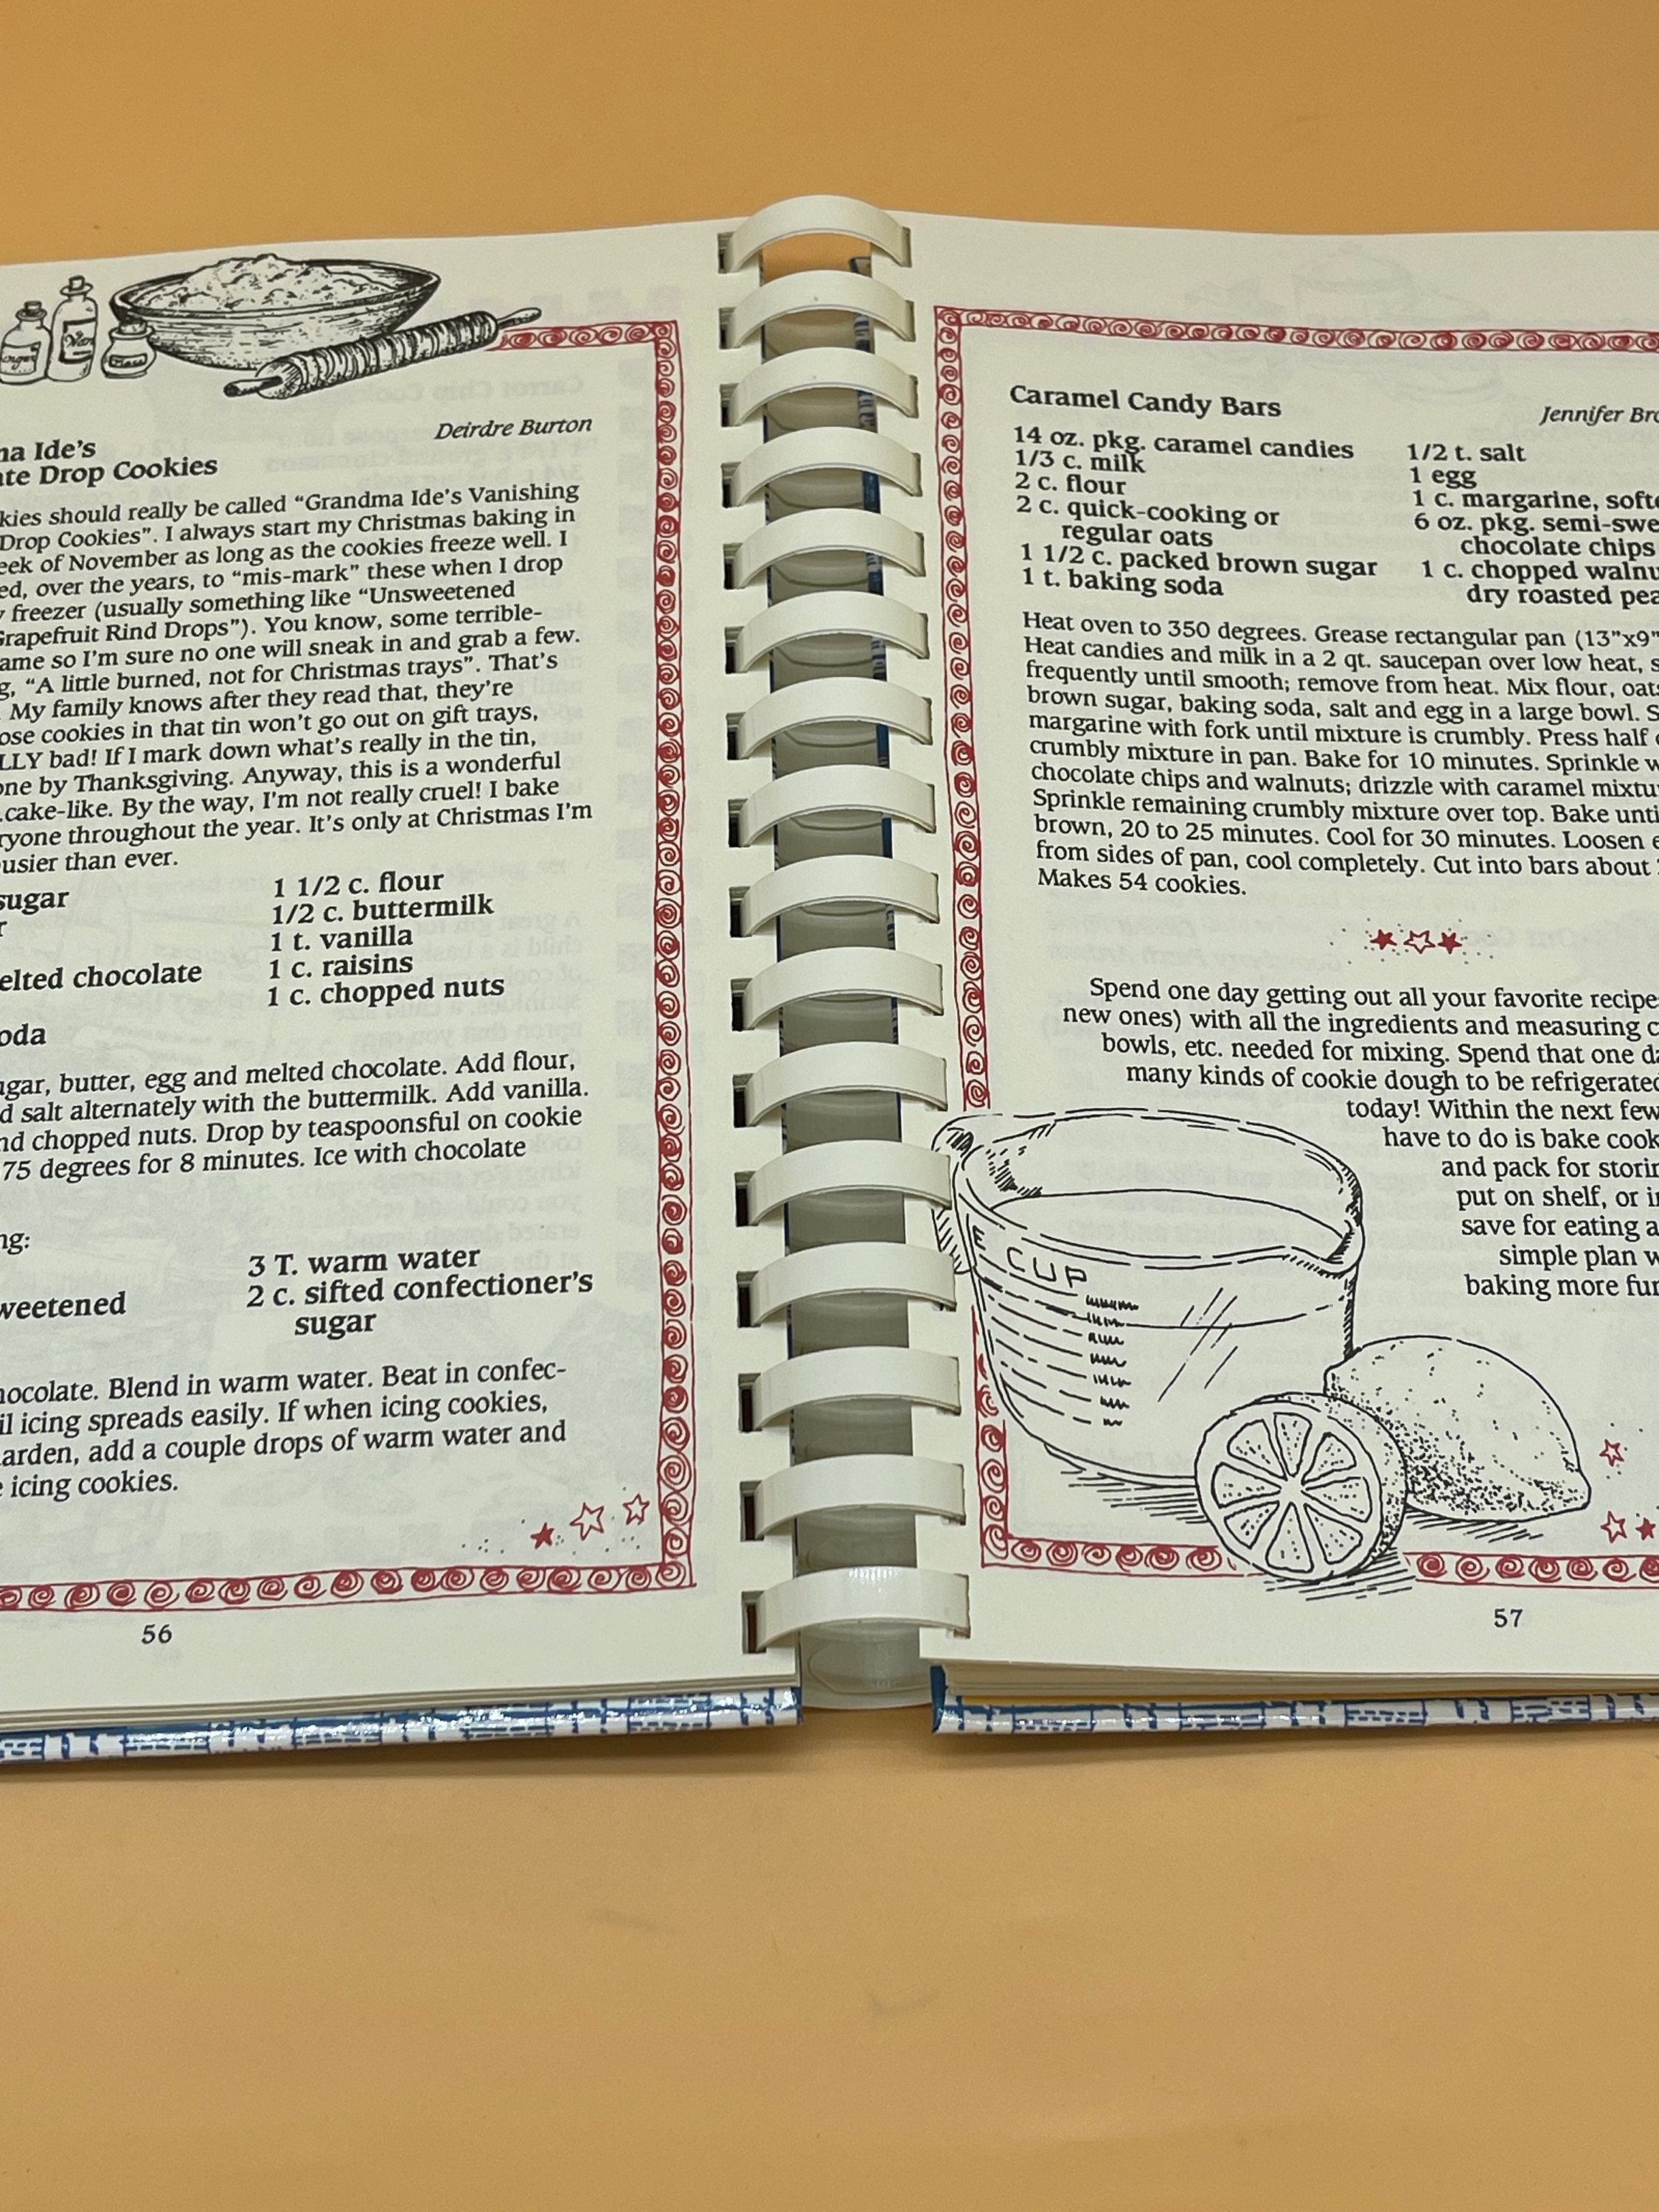 Deirdre Burton
Ide's
Drop Cookies
should really be called “Grandma Ide’s Vanishing
Drop Cookies”. I always start my Christmas baking in
of November as long as the cookies freeze well. I
over the years, to “mis-mark” these when I drop
freezer (usually something like “Unsweetened
Grapefruit Rind Drops”). You know, some terrible-
so I’m sure no one will sneak in and grab a few.
“A little burned, not for Christmas trays”. That’s
My family knows after they read that, they’re
cookies in that tin won’t go out on gift trays,
bad! If I mark down what’s really in the tin,
by Thanksgiving. Anyway, this is a wonderful
cake-like. By the way, I’m not really cruel! I bake
throughout the year. It’s only at Christmas I’m
than ever.
sugar
1 1/2 c. flour
1/2 c. buttermilk
1 t. vanilla
chocolate
1 c. raisins
1 c. chopped nuts
butter, egg and melted chocolate. Add flour,
salt alternately with the buttermilk. Add vanilla.
chopped nuts. Drop by teaspoonsful on cookie
75 degrees for 8 minutes. Ice with chocolate
3 T. warm water
2 c. sifted confectioner’s
sugar
Blend in warm water. Beat in confec-
icing spreads easily. If when icing cookies,
add a couple drops of warm water and
icing cookies.
56
Caramel Candy Bars
Jennifer
14 oz. pkg. caramel candies
1/3 c. milk
2 c. flour
2 c. quick-cooking or
regular oats
1 1/2 c. packed brown sugar
1 t. baking soda
1/2 t. salt
1 egg
1 c. margarine,
6 oz. pkg.
chocolate chips
1 c. chopped
dry roasted
Heat oven to 350 degrees. Grease rectangular pan (13"x9"
Heat candies and milk in a 2 qt. saucepan over low heat,
frequently until smooth; remove from heat. Mix flour,
brown sugar, baking soda, salt and egg in a large bowl.
margarine with fork until mixture is crumbly. Press half
crumbly mixture in pan. Bake for 10 minutes. Sprinkle
chocolate chips and walnuts; drizzle with caramel
Sprinkle remaining crumbly mixture over top. Bake
brown, 20 to 25 minutes. Cool for 30 minutes. Loosen
from sides of pan, cool completely. Cut into bars about
Makes 54 cookies.
Spend one day getting out all your favorite
new ones) with all the ingredients and measuring
bowls, etc. needed for mixing. Spend that one
many kinds of cookie dough to be refrigerated
today! Within the next few
have to do is bake
and pack for
put on shelf, or
save for eating
simple plan
baking more
CUP
57